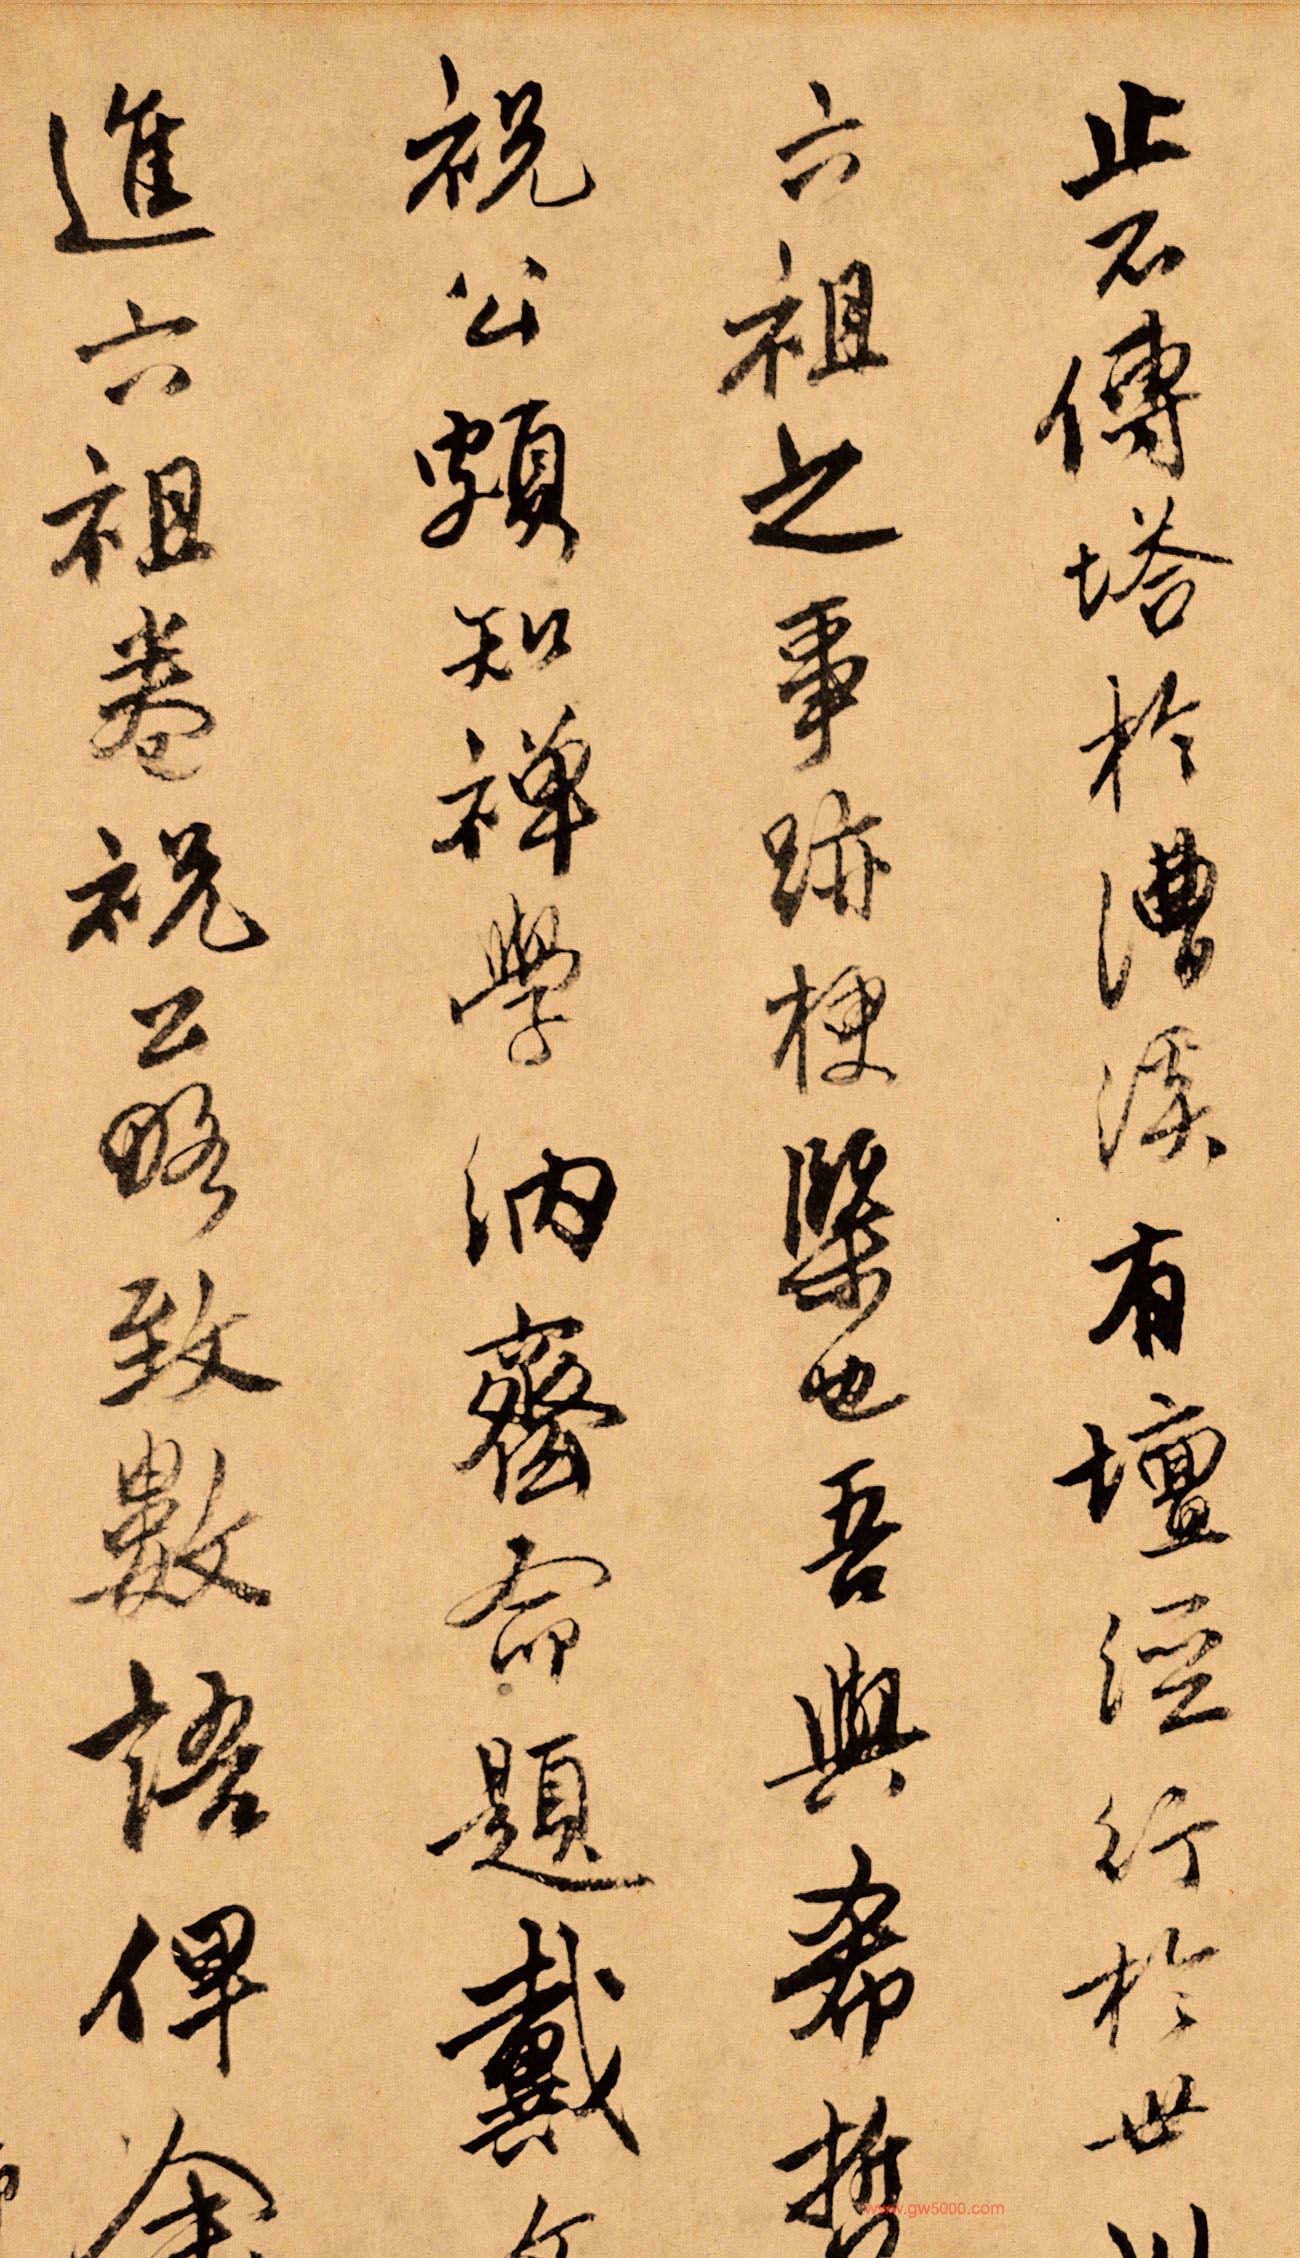 止不傳塔於漕溪有壇經行於世此
六祖之事跡梗槩也吾與希哲
祝公頗知禪學納齋命題戴文
進六祖卷祝公略致數語俾余
www.gw5000.com